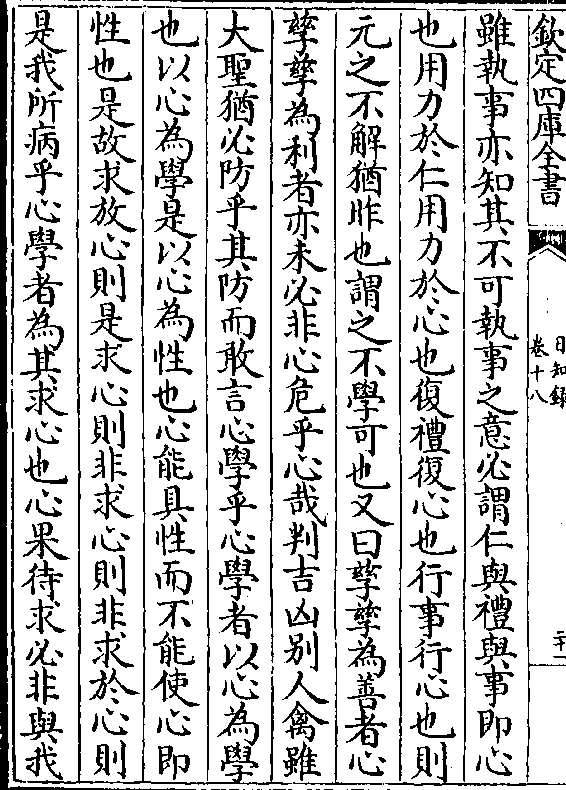 欽定四庫全書
日知錄
卷十八
二十一
雖執事亦知其不可執事之意必謂仁與禮與事即心
也用力於仁用力於心也復禮復心也行事行心也則
元之不解猶昨也謂之不學可也又曰孳孳為善者心
孳孳為利者亦未必非心危乎心哉判吉凶别人禽雖
大聖猶必防乎其防而敢言心學乎心學者以心為學
也以心為學是以心為性也心能具性而不能使心即
性也是故求放心則是求心則非求心則非求於心則
是我所病乎心學者為其求心也心果待求必非與我